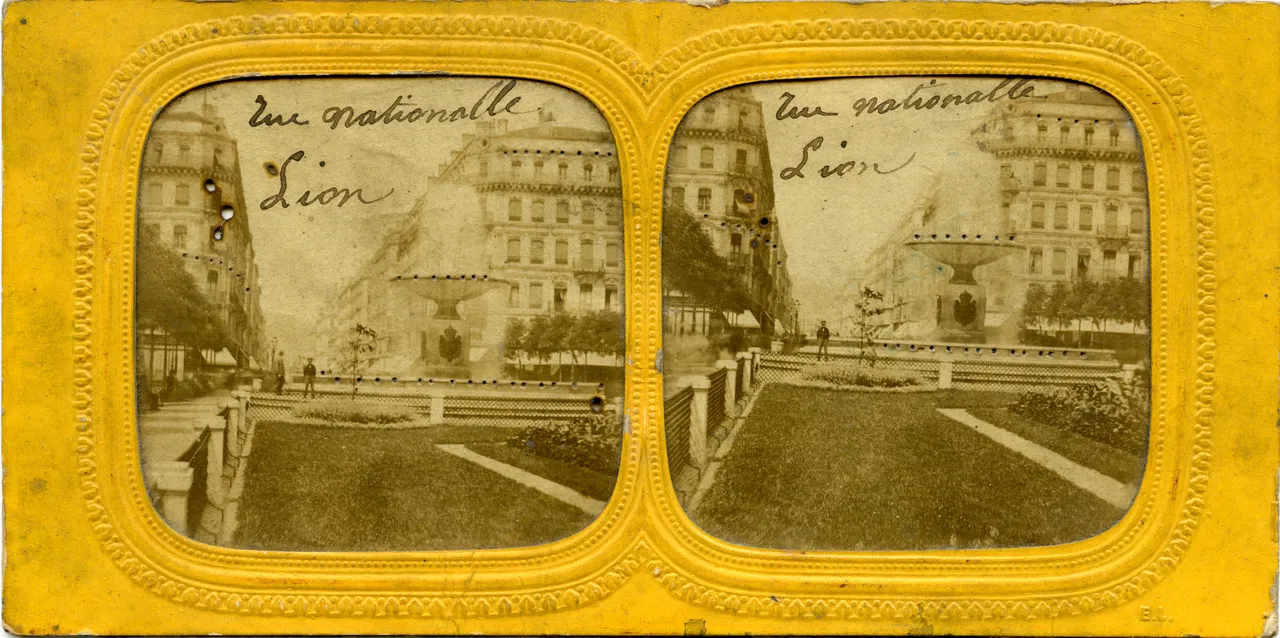 Rue nationalle
Lion
Rue nationalle
Lion
B.L.